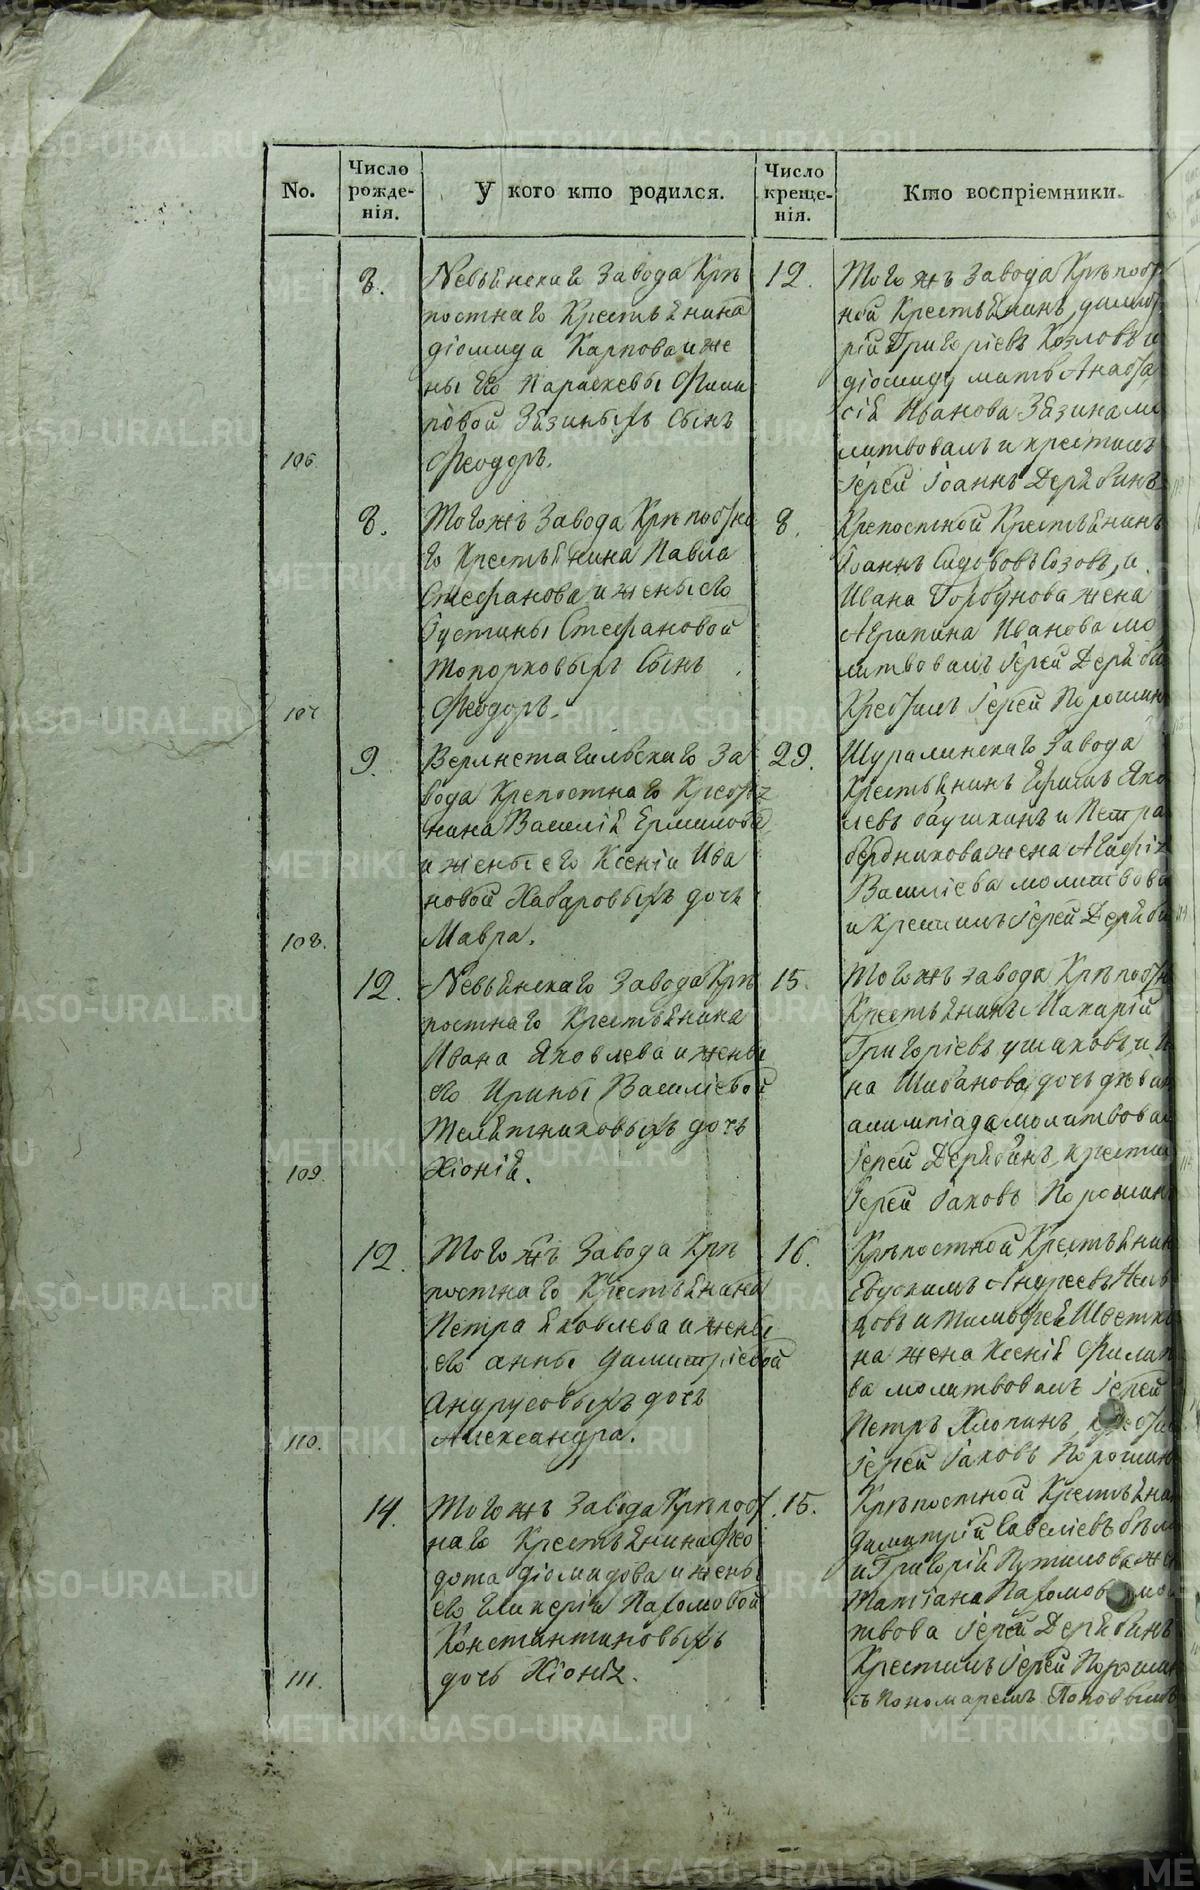 No.
Число рожде-нія.
У кого кто родился.
Число креще-нія.
Кто воспріемники.
106.
8.
Невьянскаго Завода Крѣ
постнаго Крестьянина
діомида Карпова и же
ны его Параскевы Фили
повой Зязиныхъ Сынъ
Феодоръ.
12.
Того жъ завода Крѣпост
ной Крестьянинъ димит
рій Григорієвъ Козловъ и
діомида мать Анаста
сія Иванова Зязина мо
литвовалъ и крестилъ
Іерей Іоаннъ Дерябинъ
107.
8.
Того жъ Завода Крѣпостна
го Крестьянина Павла
Стефанова и жены его
Іустины Стефановой
Топорковыхъ Сынъ
Феодоръ.
8.
Крепостной Крестьянинъ
Іоаннъ Сидоровъ и
Ивана Горбунова жена
Агрипина Иванова мо
литвовалъ Іерей Деряби
Крестилъ Іерей Порошин
108.
9.
Верхнетагильскаго За
вода Крепостнаго Кресть
нина Василія Ермилова
и жены его Ксеніи Ива
новой Хабаровыхъ дочь
Мавра.
29.
Шуралинскаго Завода
Крестьянинъ Ефимъ Яко
левъ баушкинъ и Петра
бердникова жена Агафія
Василіева молитвова
и Крестилъ Іерей Деряби
109.
12.
Невьянскаго Завода Крѣ
постнаго Крестьянина
Ивана Яковлева и жены
его Ирины Василіевой
Телѣтниковыхъ дочь
Хіонія.
15.
Того жъ завода Крѣпостн
Крестьянинъ Макарій
Григорієвъ ушаковъ и
на Шибанова дочь дѣви
алимпіада молитвовал
Іерей Дерябинъ, крестил
Іерей Іаковъ Порошин
110.
12.
Того жъ Завода Крѣ
постнаго Крестьянина
Петра Яковлева и жены
его анны димитріевой
Андрусовыхъ дочь
Александра.
16.
Крѣпостной Крестьянин
Евдокимъ Андреевъ
ковъ и Тимофея Щетки
на жена Ксенія Филип
ва молитвовалъ Іерей
Петръ Хлопинъ, крестил
Іерей Іаковъ Порошин
111.
14.
Того жъ Завода Крѣпост
наго Крестьянина Фео
дота діомидова и жены
его Гликеріи Пахомовой
Константиновыхъ
дочь Хіонія.
15.
Крѣпостной Крестьяни
димитрій Савеліевъ
и Григорія Путилова же
Татіана Пахомов мол
твова Іерей Дерябинъ
Крестилъ Іерей Порошин
съ пономаремъ Поповымъ
METRIKI.GASO-URAL.RU